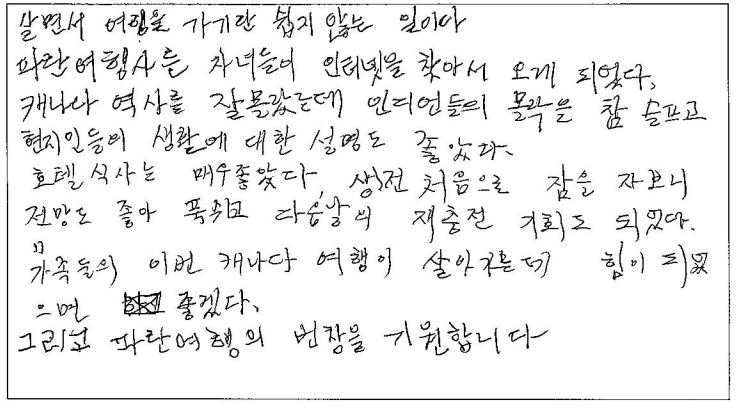 살면서 여행을 가기란 쉽지 않는 일이다
파란여행사를 자녀들이 인터넷을 찾아서 오게 되었다.
캐나다 역사를 잘몰랐는데 인디언들의 몰락을 참 슬프고
현지인들의 생활에 대한 설명도 좋았다.
호텔식사는 매우좋았다, 생전 처음으로 잠을 자보니
전망도 좋아 푹쉬고 다음날의 재충전 기회도 되었다.
가족들의 이번 캐나다 여행이 살아가는데 힘이 되었
으면 좋겠다.
그리고 파란여행의 번창을 기원합니다